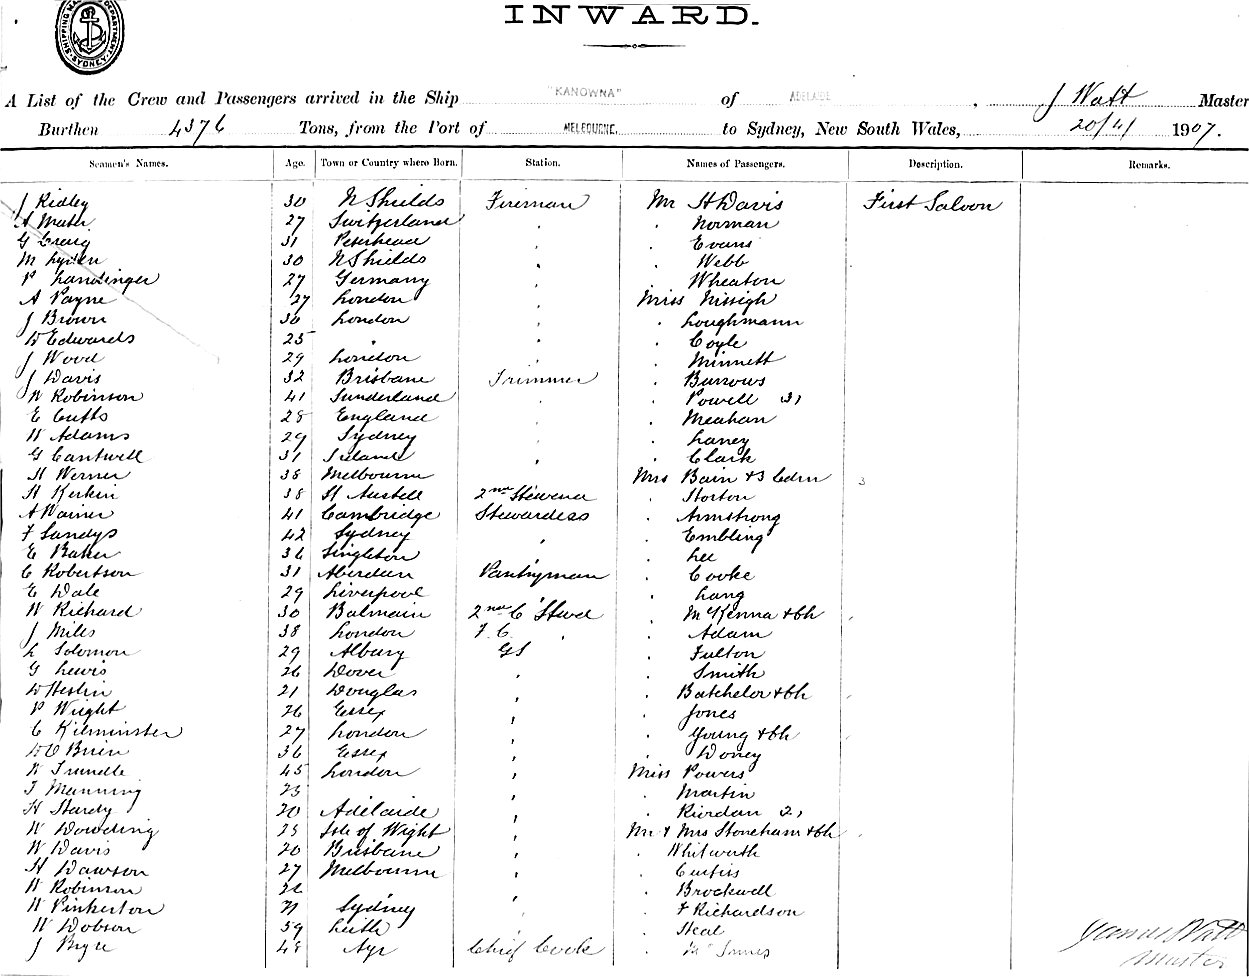 SHIPPING MASTER'S DEPARTMENT SYDNEY
INWARD.
A List of the Crew and Passengers arrived in the Ship "KANOWNA" of ADELAIDE, J Watt Master
Burthen 4376 Tons, from the Port of MELBOURNE. to Sydney, New South Wales, 20/4/ 1907.
Seamen's Names. Age. Town or Country where Born. Station. Names of Passengers. Description. Remarks.
J Ridley 30 N Shields Fireman Mr H Davis First Saloon
A 27 Switzerland " " Norman
G Craig 31 Peterhead " " Evans
M Lyden 30 N Shields " " Webb
P Landinger 27 Germany " " Wheaton
A Payne 27 London " Miss
J Brown 30 London " " Loughmann
W Edwards 25 " " " Coyle
J Wood 29 London " " Minnett
J Davis 32 Brisbane Trimmer " Burrows
W Robinson 41 Sunderland " " Powell
E Cutts 28 England " " Meahan
W Adams 29 Sydney " " Laney
G Cantwell 31 Ireland " " Clark
H Werner 38 Melbourne Mrs Bain & 3 Cdrn 3
H 38 St Austell 2nd Steward " Storton
A Warner 41 Cambridge Stewardess " Armstrong
F Sandys 42 Sydney " " Embling
E Baker 36 Singleton " " Lee
C Robertson 31 Aberdeen Pantryman " Cooke
E Dale 29 Liverpool " Lang
W Richard 30 Balmain 2nd C Stwd " McKenna & Ch
J Miles 38 London F.C. " " Adam
L Solomon 29 Albury GS " Fulton
G Lewis 26 Dover " " Smith
W Heslin 21 Douglas " " Batchelor & Ch
P Wright 26 Essex " " Jones
C Kilminster 27 London " " Young & Ch
W O Brien 36 Essex " " Doney
W Trundle 45 London " Miss Powers
T Manning 23 " " Martin
H Hardy 20 Adelaide " " Riordan
W Dowding 25 Isle of Wight " Mr & Mrs Stoneham & Ch
W Davis 20 Brisbane " " Whitworth
H Dawson 27 Melbourne " " Curtis
W Robinson " " Brockwell
W Pinkerton 21 Sydney " " F Richardson
W Dobson 59 Leith " " Heal
J Bryce 48 Ayr Chief Cook " McInnes
James Watt
Master